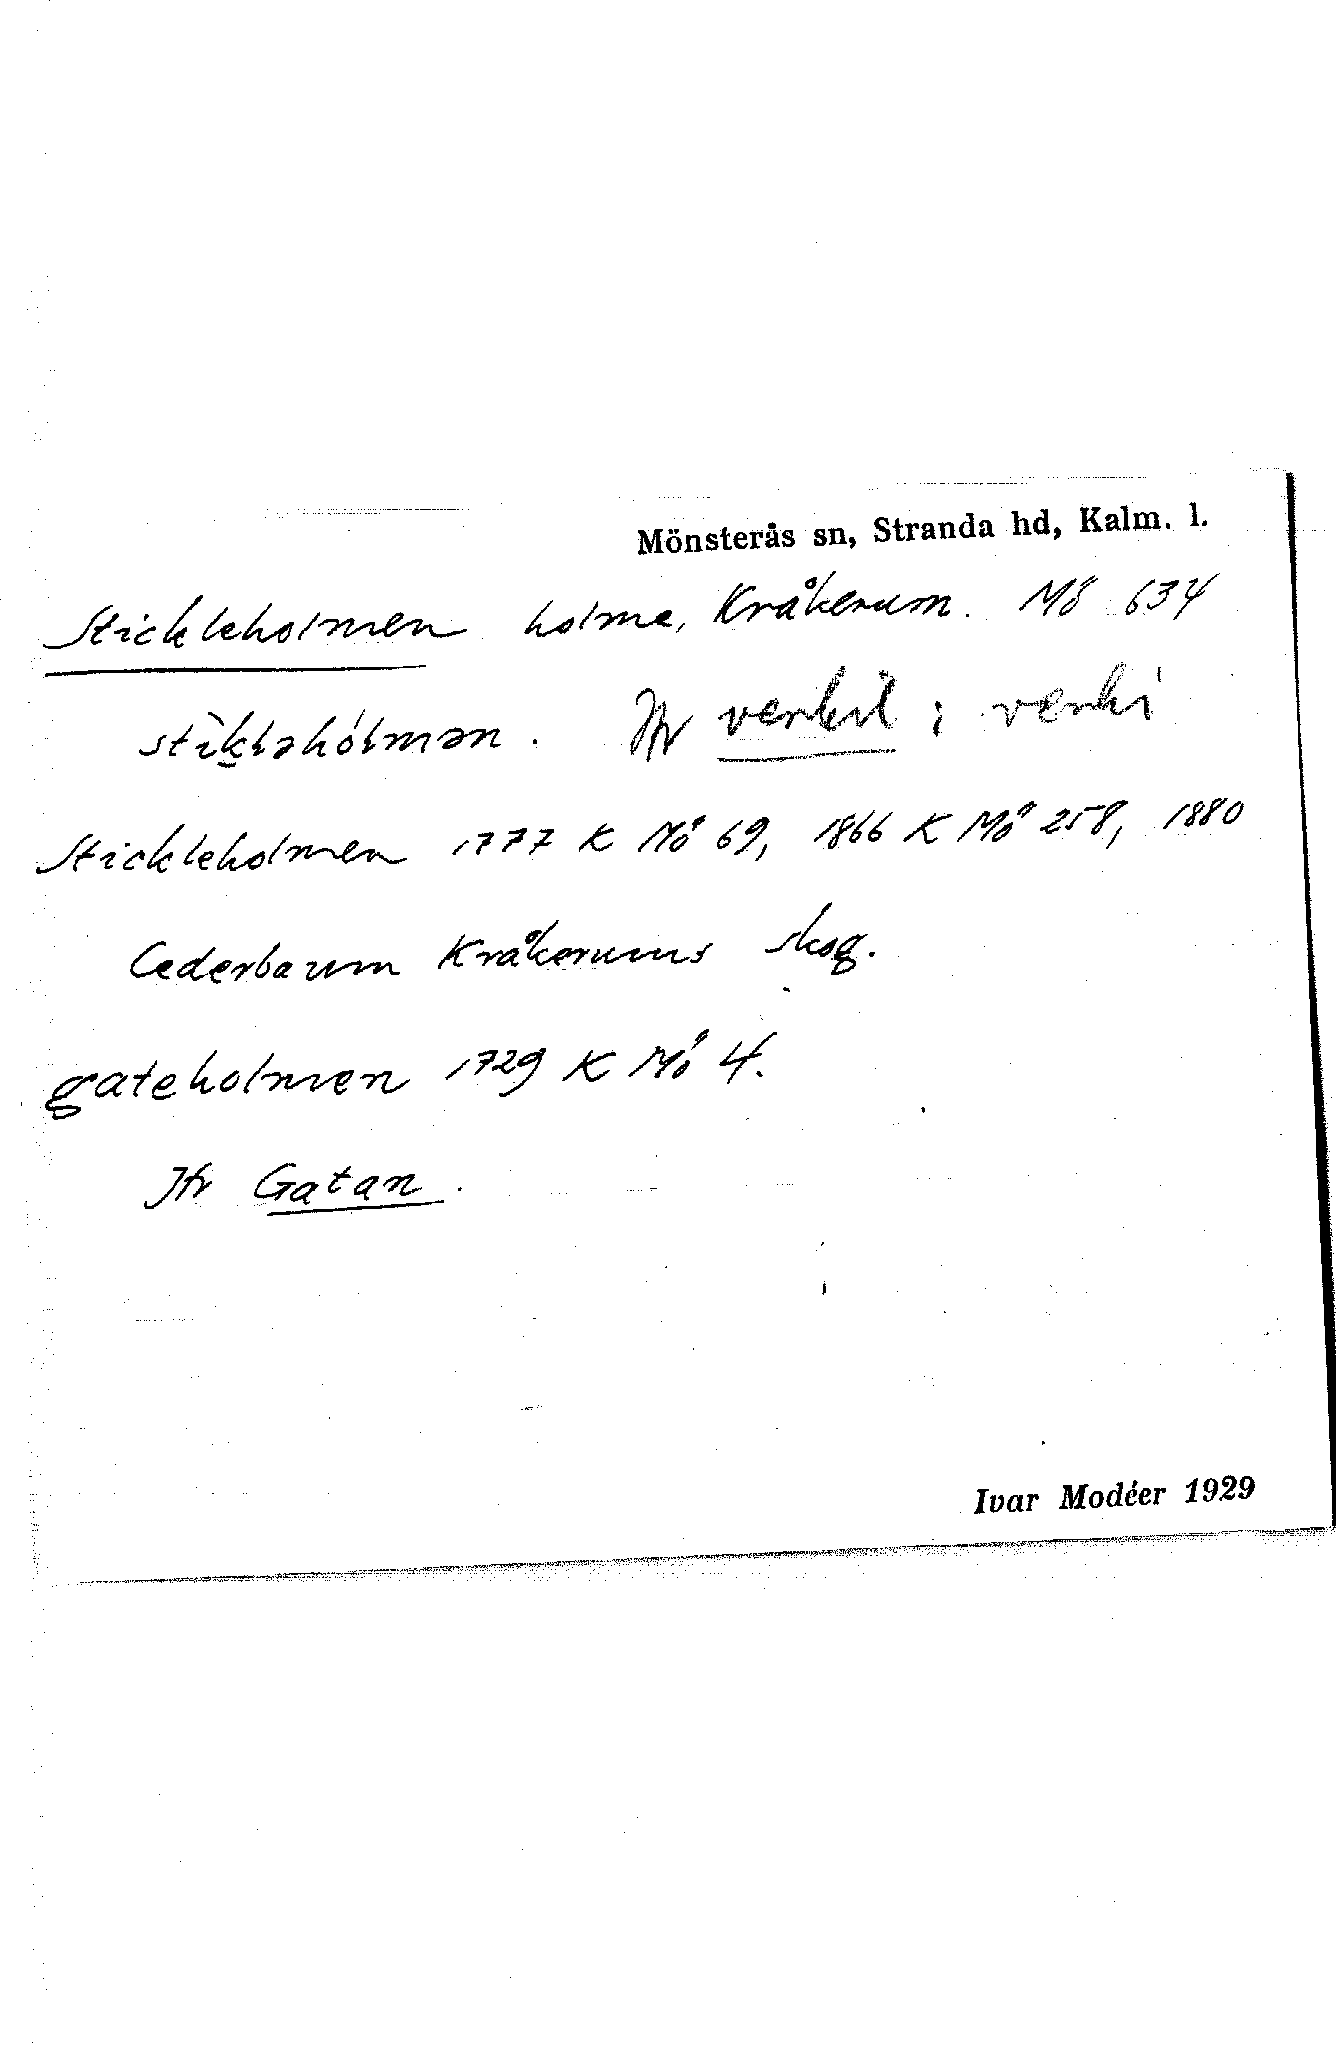 Mönsterås sn, Stranda hd, Kalm. l.
Stickleholmen holme, Kråkerum. Mö 634
stìkləhólmən. Jfr
Stickleholmen 1777 K Mö 69, 1866 K Mö 258, 1880
Cederbaum Kråkerums skog.
gateholmen 1729 K Mö 4.
Jfr Gatan.
Ivar Modéer 1929